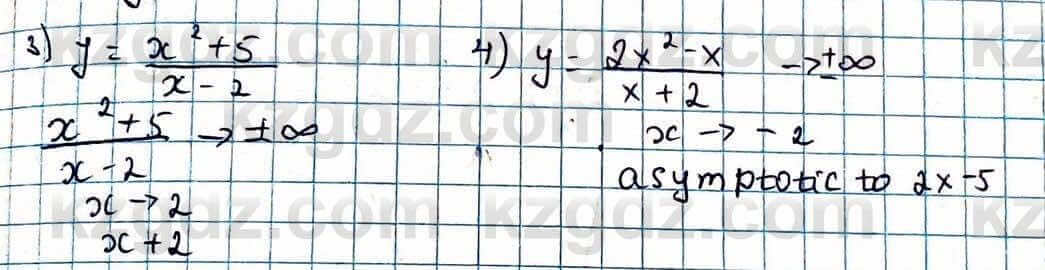 3) y = (x² + 5)/(x - 2)
(x² + 5)/(x - 2) → ± ∞
x → 2
x + 2
4) y = (2x² - x)/(x + 2) → ± ∞
x → - 2
asymptotic to 2x - 5
kzgdz.com